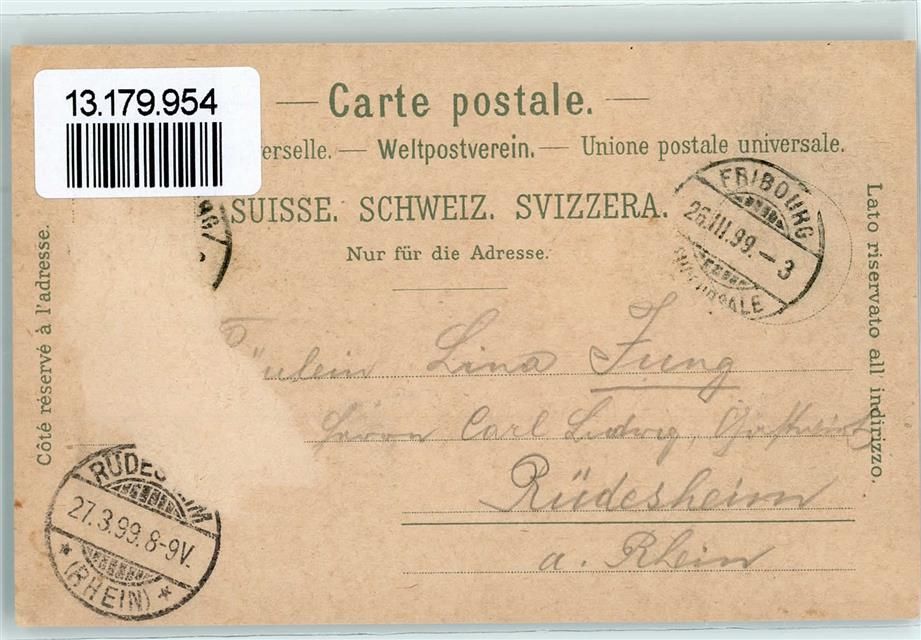 13.179.954
Carte postale.
verselle. — Weltpostverein. — Unione postale universale.
SUISSE. SCHWEIZ. SVIZZERA.
Nur für die Adresse.
Côté réservé à l'adresse.
Lato riservato all indirizzo.
FRIBOURG
26.III.99.–3
Fräulein Lina Jung
Herrn Carl Ludwig, Gasthein
Rüdesheim
a. Rhein
RÜDESHEIM
27.3.99.8-9V.
* (RHEIN) *